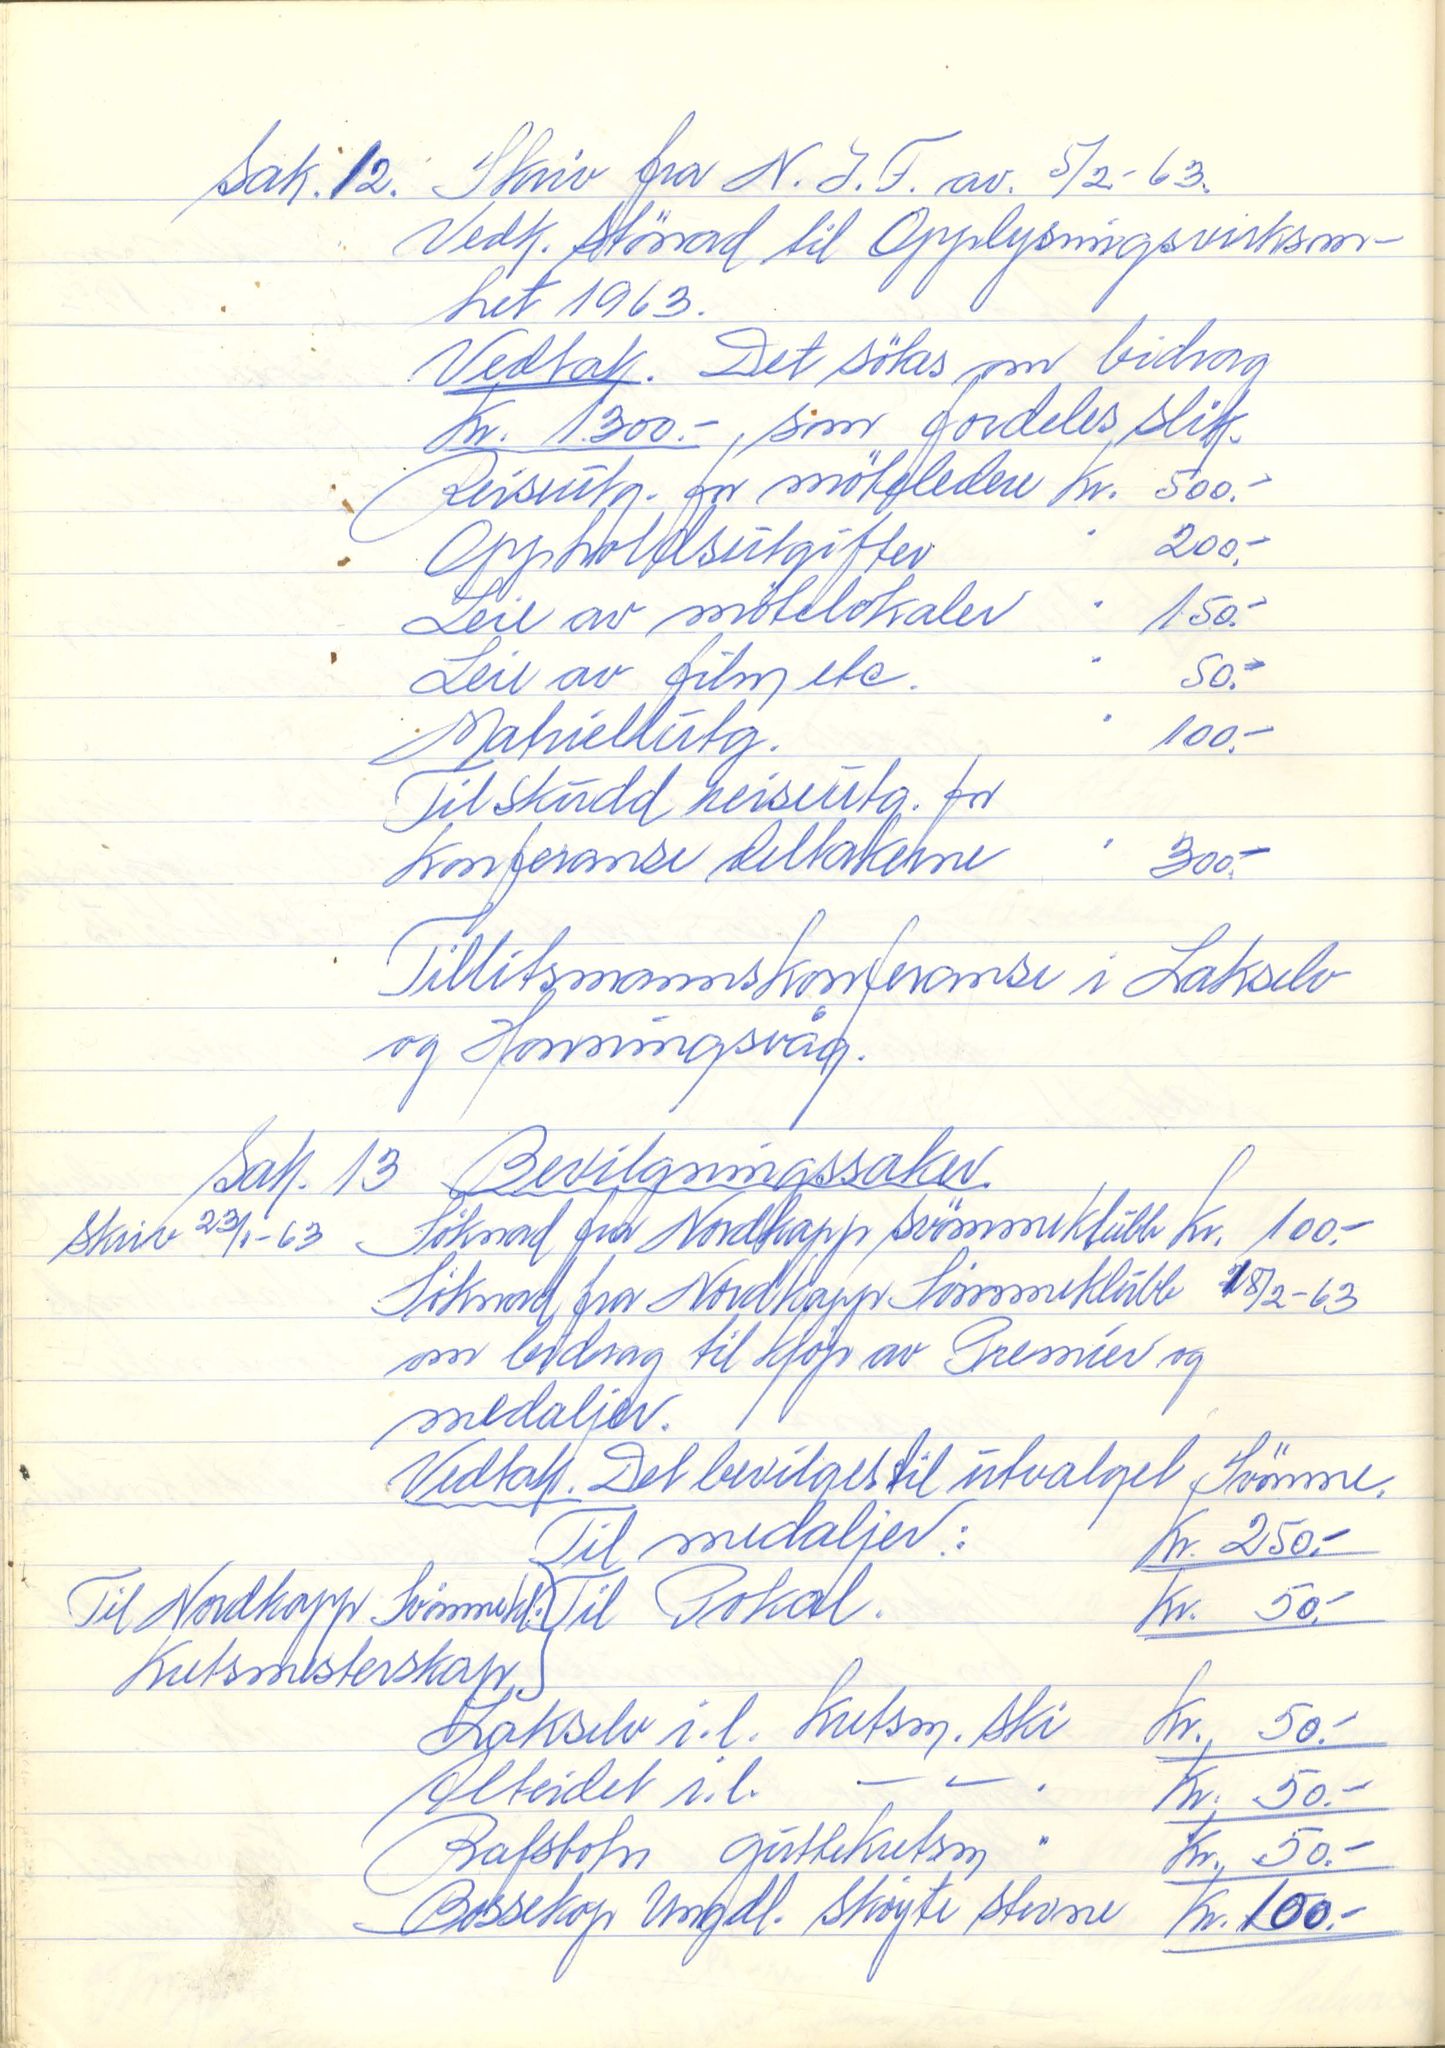 Sak. 12. Skriv fra N. I. F. av. 5/2-63.
Vedk. Stönad til Opplysningsvirksom-
het 1963.
Vedtak. Det sökes om bidrag
Kr. 1.300.-, som fordeles slik.
Reiseutg. for möteledere Kr. 500.-
Oppholdsutgifter " 200.-
Leie av mötelokaler " 150.-
Leie av film etc. " 50.-
Matriellutg. " 100.-
Tilskudd reiseutg. for
Konferanse deltakerne " 300.-
Tillitsmannskonferanse i Lakselv
og Honningsvåg.
Sak. 13 Bevilgningssaker.
Skriv 23/1-63 Söknad fra Nordkapp svömmeklubb Kr. 100.-
Söknad fra Nordkapp Sömmeklubb 18/2-63
om bidrag til kjöp av Premier og
medaljer.
Vedtak. Det bevilges til utvalget Svömme.
Til medaljer: Kr. 250.-
Til Nordkapp Svömmekl. Til Pokal. Kr. 50.-
Kretsmesterskap.
Lakselv i.l. Kretsm. Ski Kr. 50.-
Alteidet i.l. — — . Kr. 50.-
Rafsbotn guttekretsm " Kr. 50.-
Bossekop Ungdl. Sköyte stevne Kr. 100.-